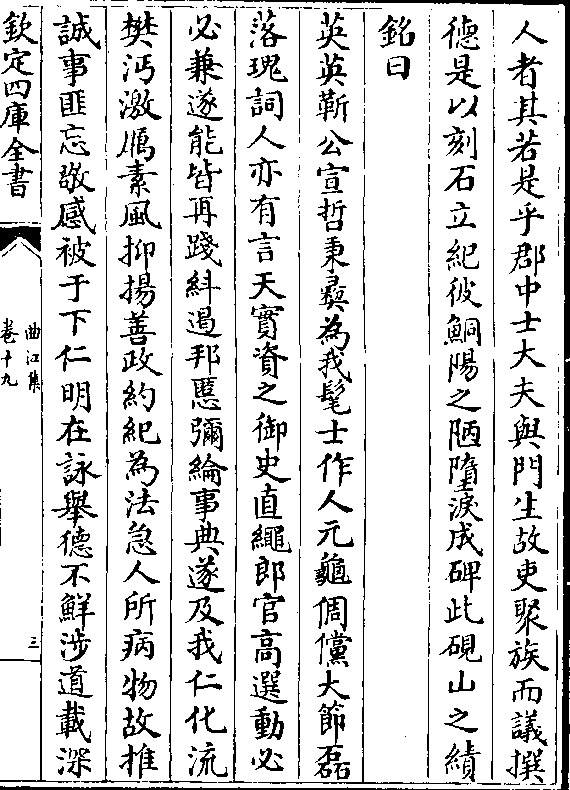 人者其若是乎郡中士大夫與門生故吏聚族而議撰
德是以刻石立紀彼鮦陽之陋墮淚成碑此硯山之績
銘曰
英英蘄公宣哲秉彞為我髦士作人元龜倜儻大節磊
落瑰詞人亦有言天實資之御史直繩郎官高選動必
必兼遂能皆再踐糾遏邦慝彌綸事典遂及我仁化流
樊沔激厲素風抑揚善政約紀為法急人所病物故推
誠事匪忘敬感被于下仁明在詠舉德不鮮涉道載深
欽定四庫全書
曲江集
卷十九
三